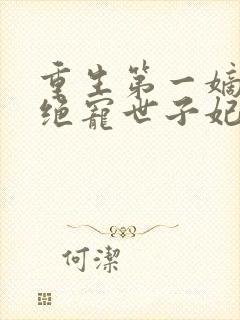 重生第一嫡
绝宠世子妃
何潔